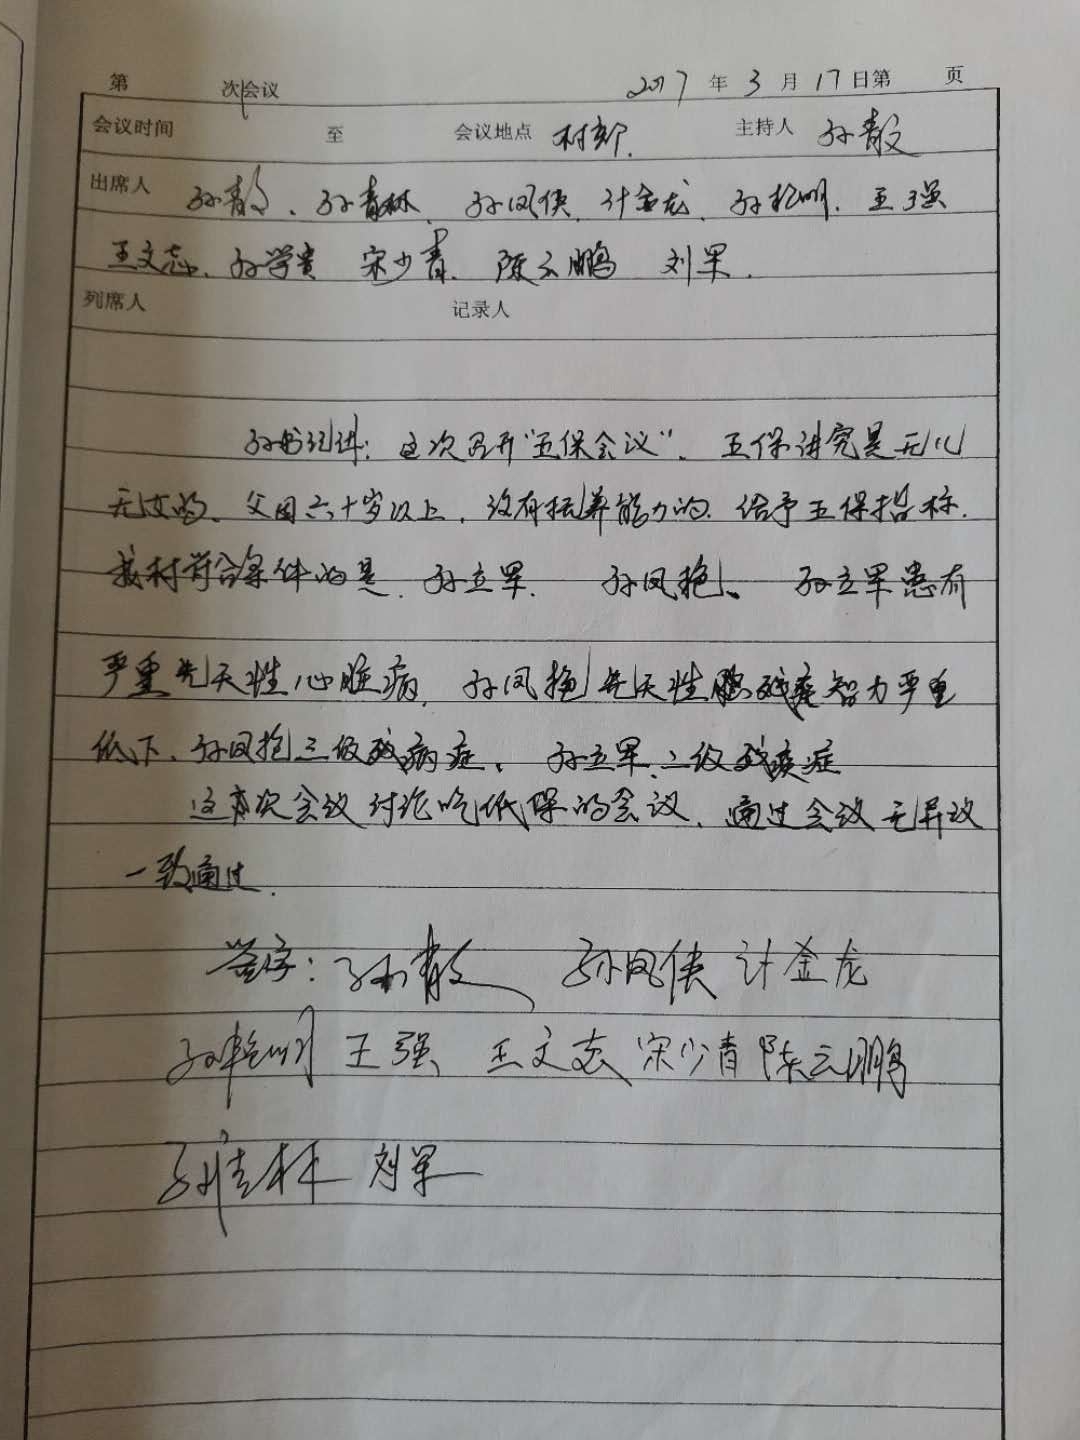 第 次会议 2017年3月17日第 页
会议时间 至 会议地点 村部. 主持人 孙青文
出席人 孙青文、孙青林、孙凤侠、计金龙、孙艳明、王强
王文志、孙学贵 宋少青、陈云鹏 刘军.
列席人 记录人
孙书记讲：这次召开“五保会议”、五保讲究是无儿
无女的、父母六十岁以上，没有抚养能力的.给予五保指标.
我村符合条件的是.孙立军. 孙凤艳、 孙立军患有
严重先天性心脏病，孙凤艳先天性 残疾智力严重
低下、孙凤抱三级残病症、 孙立军、二级残疾症
这次会议讨论吃低保的会议、通过会议无异议
一致通过.
签字：孙青文 孙凤侠 计金龙
孙艳明 王强 王文志 宋少青 陈云鹏
孙青林 刘军